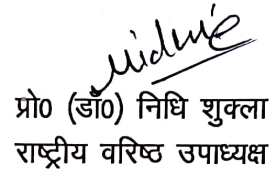 प्रो0 (डॉ0) निधि शुक्ला
राष्ट्रीय वरिष्ठ उपाध्यक्ष